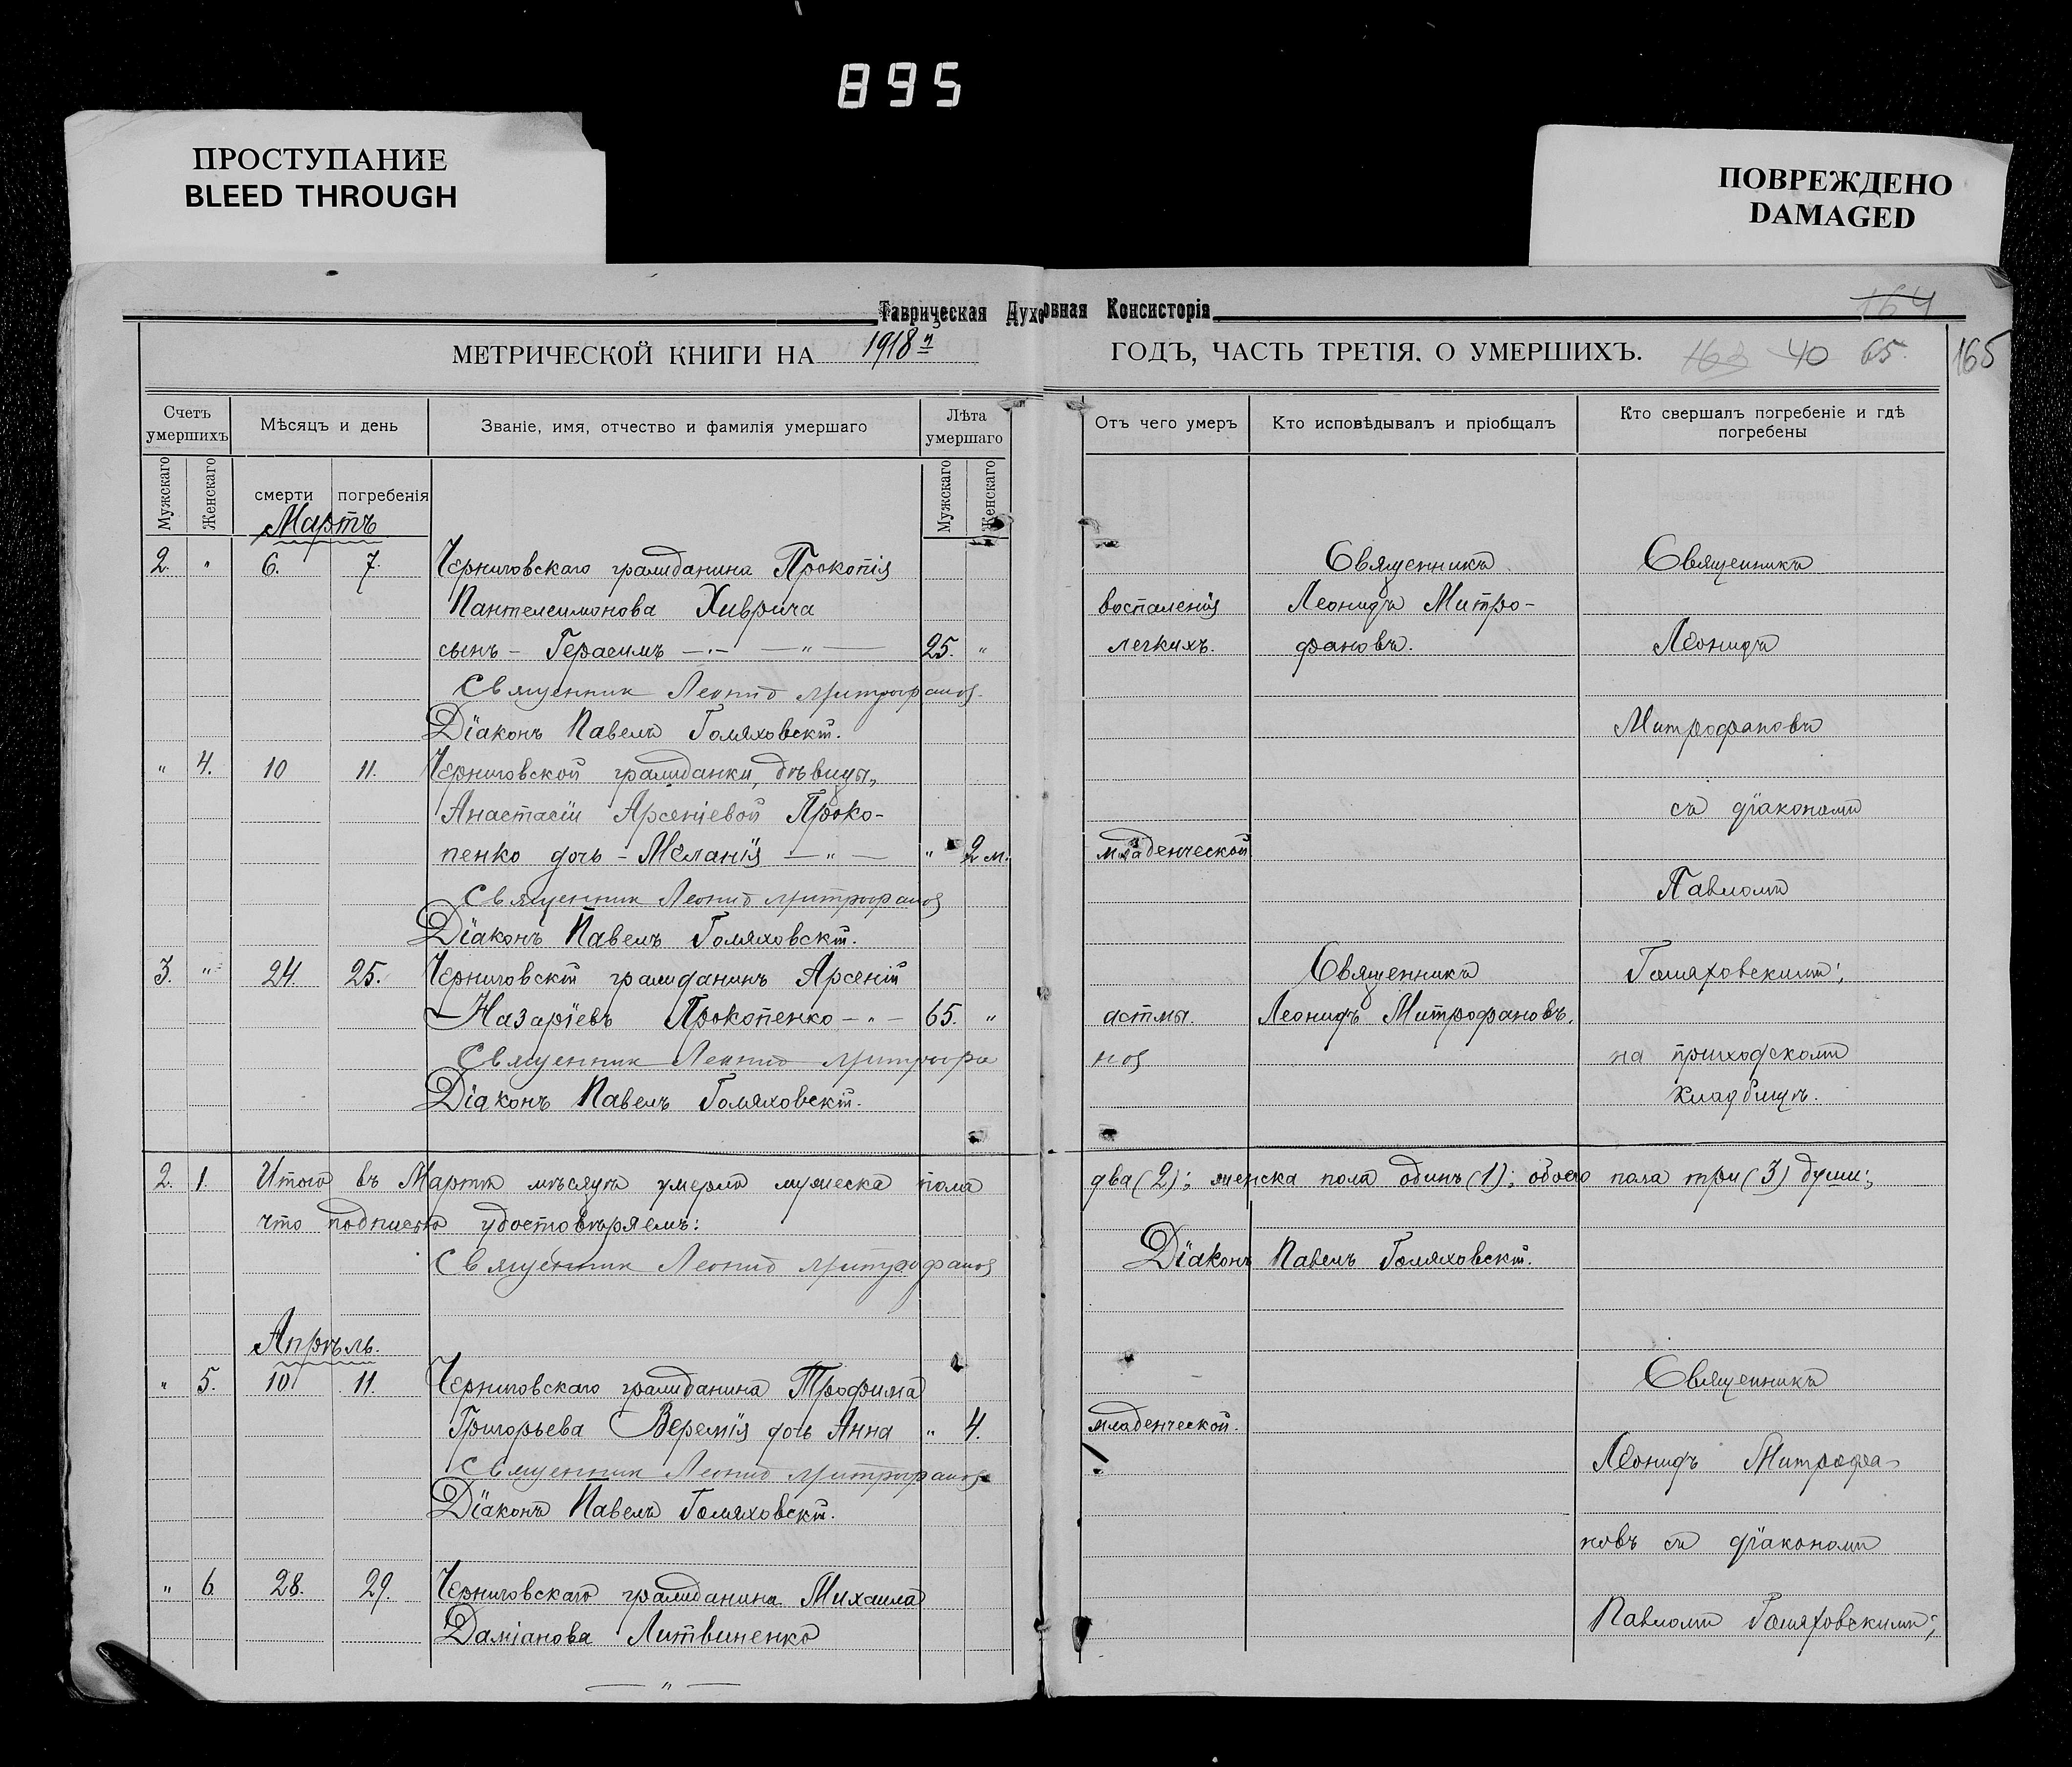 895
ПРОСТУПАНИЕ
BLEED THROUGH
ПОВРЕЖДЕНО
DAMAGED
Таврическая Духовная Консисторія
164
МЕТРИЧЕСКОЙ КНИГИ НА 1918й
ГОДЪ, ЧАСТЬ ТРЕТІЯ. О УМЕРШИХЪ. 163 40 65. 165
Счетъ умершихъ
Мѣсяцъ и день
Званіе, имя, отчество и фамилія умершаго
Лѣта умершаго
Мужскаго
Женскаго
смерти
погребенія
Мужскаго
Женскаго
Мартъ
2. " 6. 7. Черниговскаго гражданина Прокопія
Пантелеимонова Хиврича
сынъ - Герасимъ — " — " — 25. "
Священник Леонид Митрофанов.
Діаконъ Павелъ Гомяховскій.
" 4. 10 11. Черниговской гражданки, дѣвицы,
Анастасіи Арсеніевой Проко-
пенко дочь - Меланія — " — " 2 м.
Священник Леонид Митрофанов
Діаконъ Павелъ Гомяховскій.
3. " 24. 25. Черниговскій гражданинъ Арсеній
Назаріевъ Прокопенко - " - 65. "
Священник Леонид Митрофа
Діаконъ Павелъ Гомяховскій.
2. 1. Итого въ Мартѣ мѣсяцѣ умерло мужеска пола
что подписью удостовѣряемъ:
Священник Леонид Митрофанов
Апрѣль.
" 5. 10 11. Черниговскаго гражданина Трофима
Григорьева Веремія дочь Анна " 4.
Священник Леонид Митрофанов
Діаконъ Павелъ Гомяховскій.
" 6 28. 29. Черниговскаго гражданина Михаила
Даміанова Литвиненко
— " —
Отъ чего умеръ
Кто исповѣдывалъ и пріобщалъ
Кто свершалъ погребеніе и гдѣ погребены
Священникъ Священникъ
воспаленія Леонидъ Митро-
легкихъ. фановъ. Леонидъ
Митрофановъ
съ діакономъ
младенческой
Павломъ
Священникъ Гомяховскимъ;
астмы. Леонидъ Митрофановъ.
нов на приходскомъ
кладбищѣ.
два (2); женска пола одинъ (1); обоего пола три (3) души;
Діаконъ Павелъ Гомяховскій.
Священникъ
младенческой.
Леонидъ Митрофа-
новъ съ діакономъ
Павломъ Гомяховскимъ;